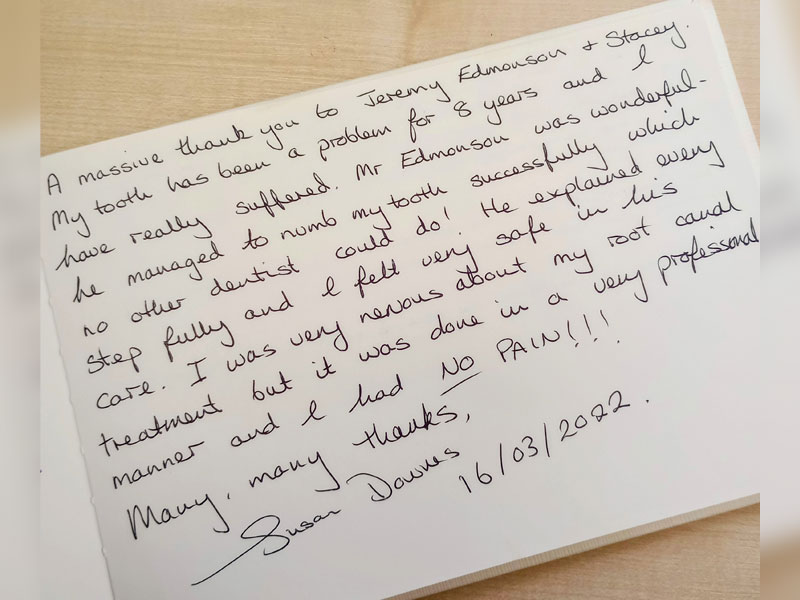 A massive thank you to Jeremy Edmonson + Stacey.
My tooth has been a problem for 8 years and I
have really suffered. Mr Edmonson was wonderful-
he managed to numb my tooth successfully which
no other dentist could do! He explained every
step fully and I felt very safe in his
care. I was very nervous about my root canal
treatment but it was done in a very professional
manner and I had NO PAIN!!!
Many, many thanks,
Susan Downes
16/03/2022.